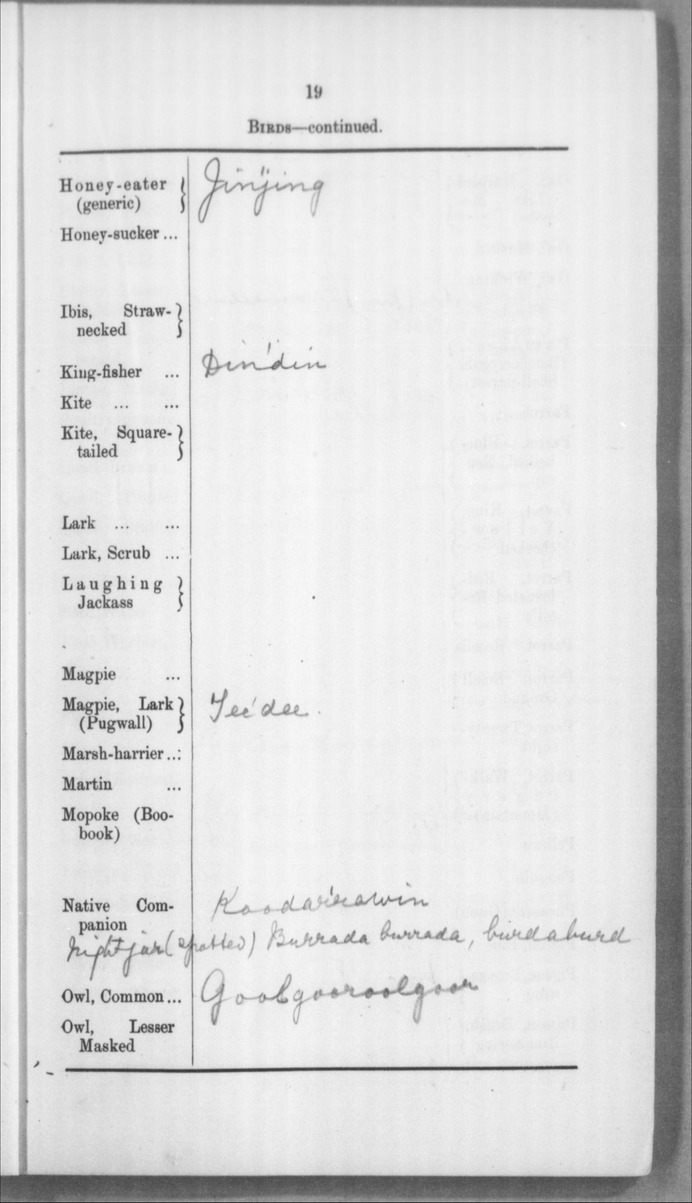 19
BIRDS—continued.
Honey-eater (generic) } Jin'jing
Honey-sucker ...
Ibis, Straw-necked }
King-fisher ... Din'din
Kite ... ...
Kite, Square-tailed }
Lark ... ...
Lark, Scrub ...
Laughing Jackass }
Magpie ...
Magpie, Lark (Pugwall) } Jee'dee.
Marsh-harrier ...
Martin ...
Mopoke (Boobook)
Native Companion Koodar'rawin
Nightjar (spotted) Burrada burrada, burdaburd
Owl, Common ... Goolgooroolgoor
Owl, Lesser Masked